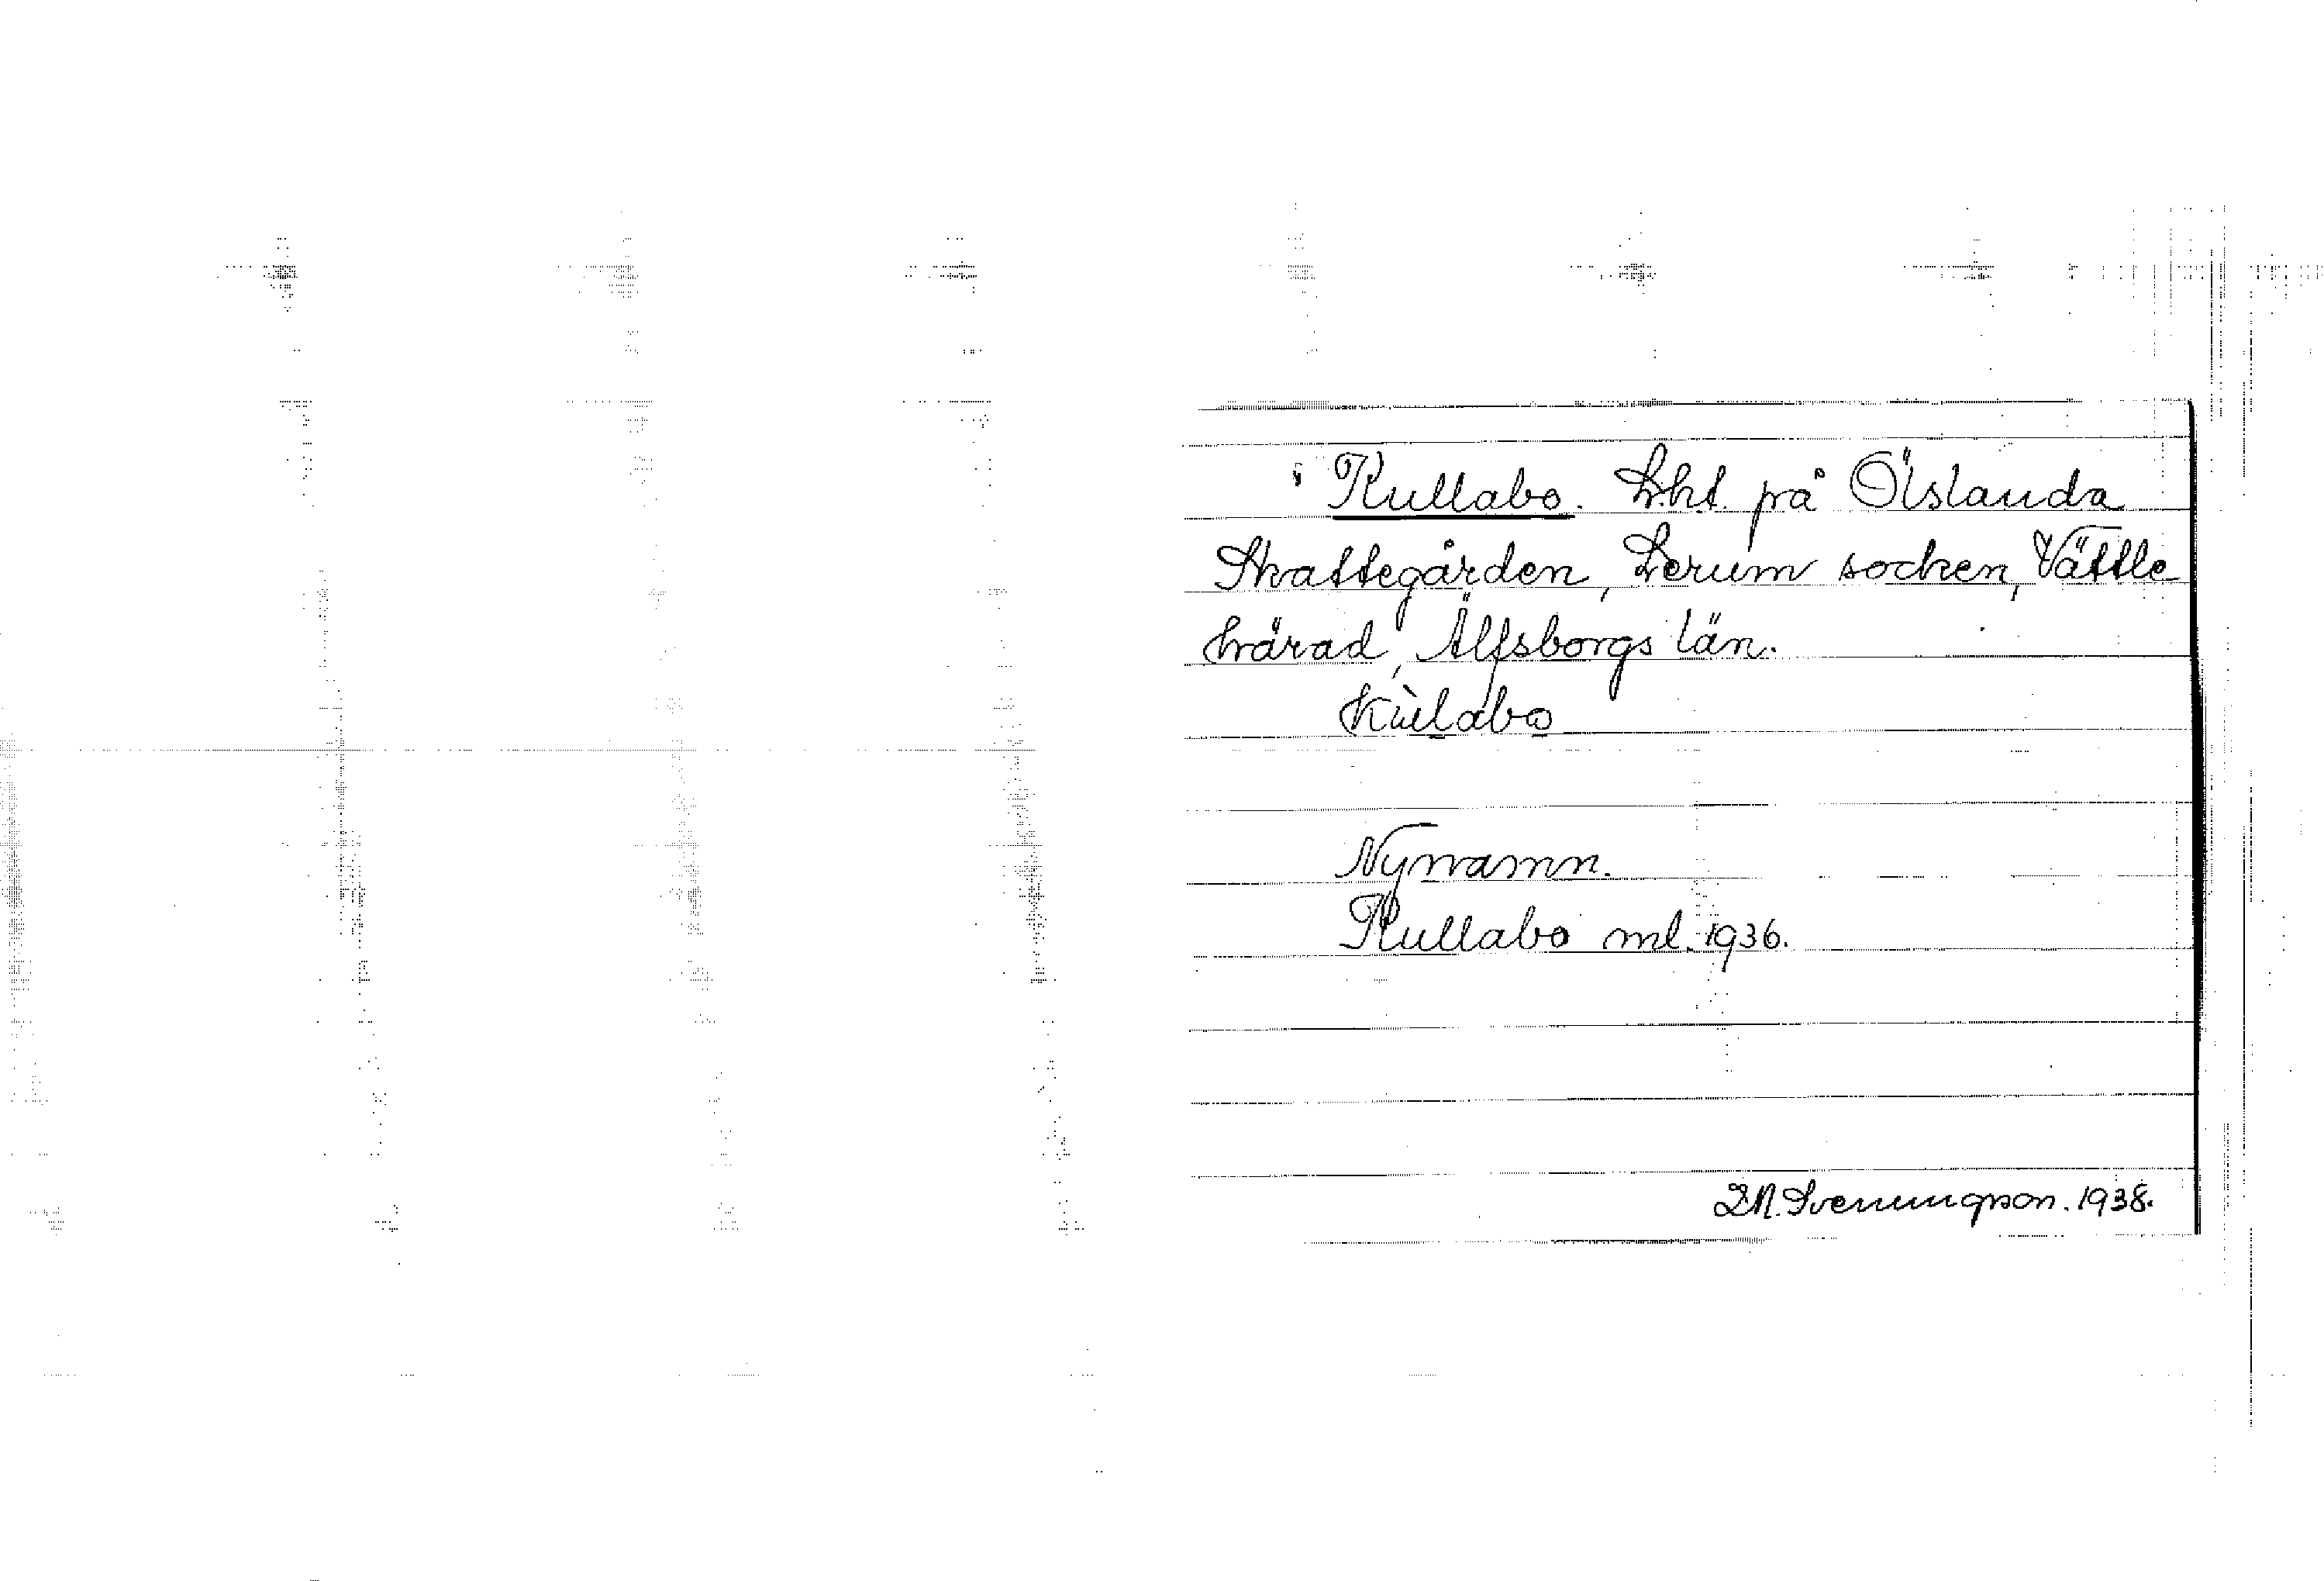 Kullabo. Lht. på Ölslanda
Skattegården, Lerum socken, Vättle
härad, Älfsborgs län.
Kùlabo
Nynamn.
Kullabo ml. 1936.
Svenungson. 1938.